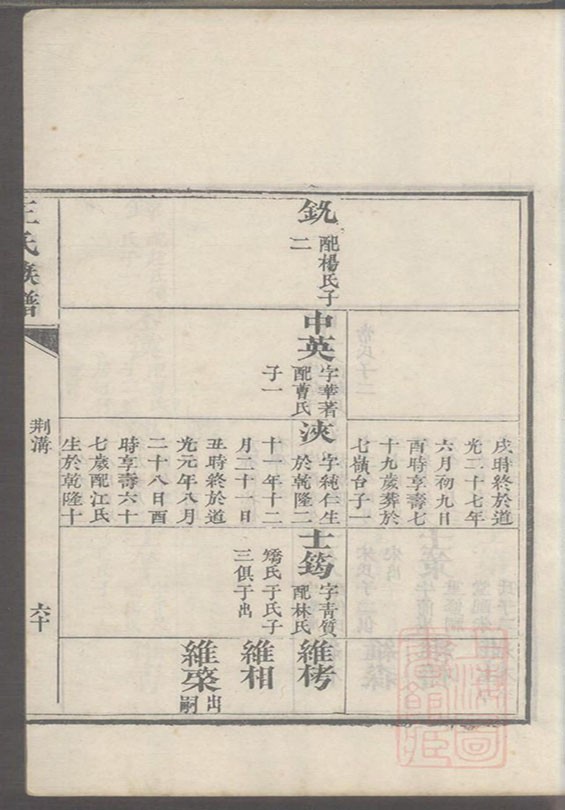 配楊氏子
二
中英
字華著
配曹氏
子一
戌時終於道
光二十七年
六月初九日
酉時享壽七
十九歲葬於
七嶺台子一
浹
字純仁生
於乾隆二
十一年十二
月二十一日
丑時終於道
光元年八月
二十八日酉
時享壽六十
七歲配江氏
生於乾隆十
士筠
字青質
配林氏
矯氏于氏子
三俱于出
維栲
維相
維
出嗣
王氏族譜
荆溝
六十